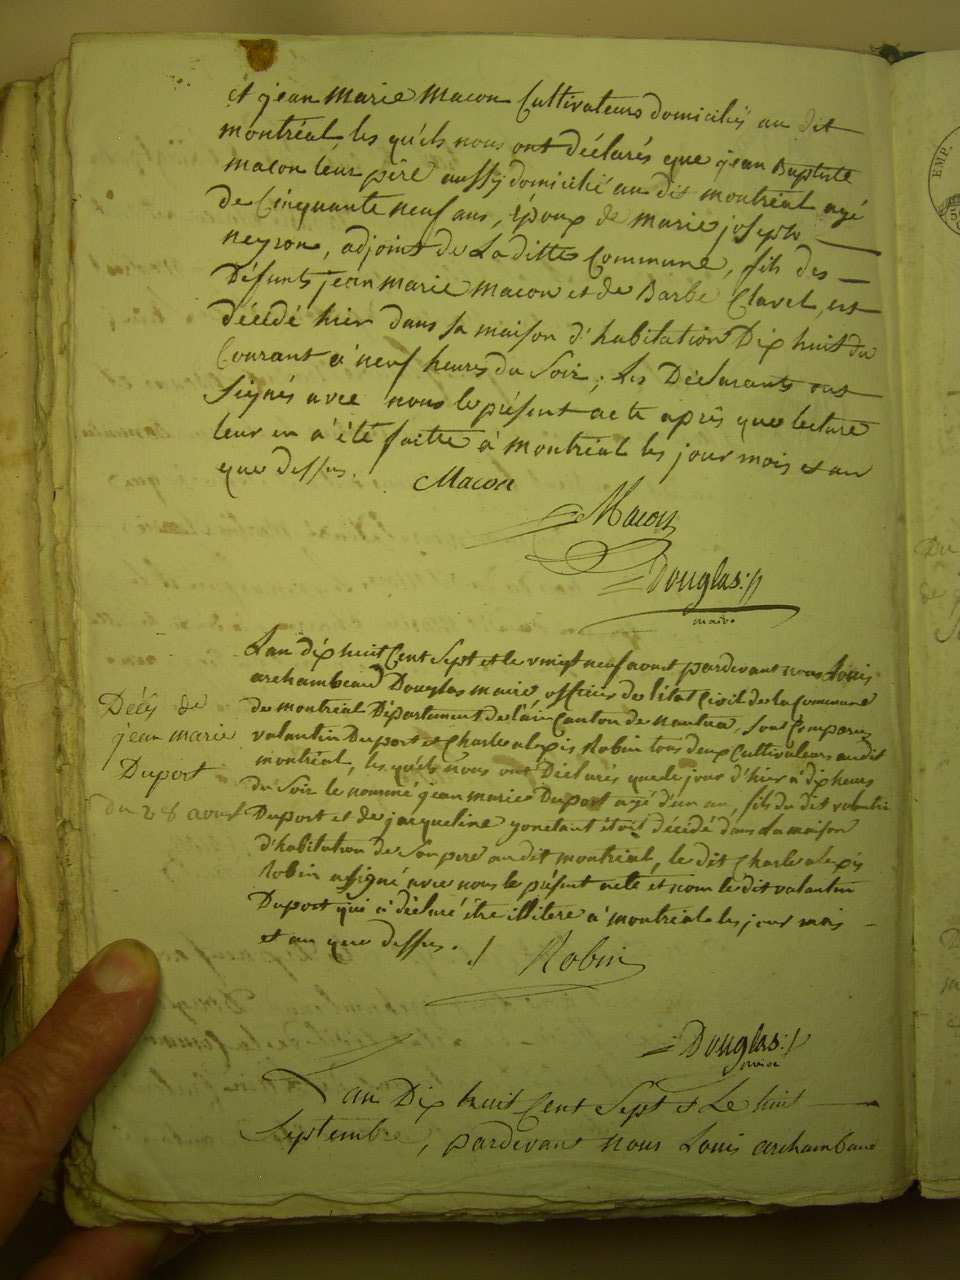 et jean marie macon Cultivateurs domiciliés au dit
montréal, les quels nous ont déclarés que jean Baptiste
macon leur père aussy domicilié au dit montréal agé
de Cinquante neuf ans, Epoux de marie josephe
neyron, adjoint de La ditte Commune, fils des
Défunts jean marie macon et de Barbe Clavel, est
décédé hier dans sa maison d'habitation Dix huit du
Courant à neuf heures du Soir; Les Déclarants ont
Signés avec nous le présent acte après que lecture
leur en a été faitte à montréal les jour mois et an
que dessus. Macon
Macon
Douglas
maire
Lan dix huit Cent Sept et le vingt neuf aoust pardevant nous Louis
archambeaud Douglas maire officier de l'état Civil de la Commune
de montréal Département de l'ain Canton de nantua, Sont Comparu
valantin Duport et Charle alexis Robin tous deux Cultivateurs au dit
montréal, les quels nous ont Déclarés que le jour d'hier à dix heures
du Soir le nommé jean marie Duport agé d'un an, fils du dit valantin
Duport et de jacqueline gonetant étoit décédé dans La maison
d'habitation de Son pere au dit montréal, le dit Charle alexis
Robin a signé avec nous le présent acte et non le dit valantin
Duport qui a déclaré être illitere à montréal les jour mois
et an que dessus.
Robin
Décès de
jean marie
Duport
du 28 aoust
Douglas
maire
Lan Dix huit Cent Sept et Le huit
Septembre, pardevant nous Louis archambaud
EMP.
Du